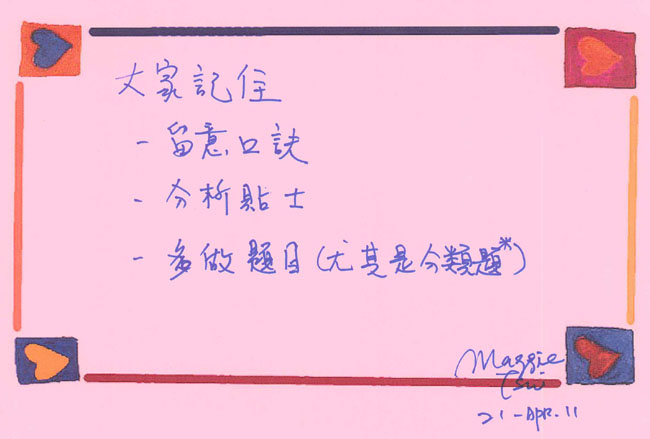 大家記住
- 留意口訣
- 分析貼士
- 多做題目(尤其是分類題*)
Maggie
Tsui
21-Apr.11